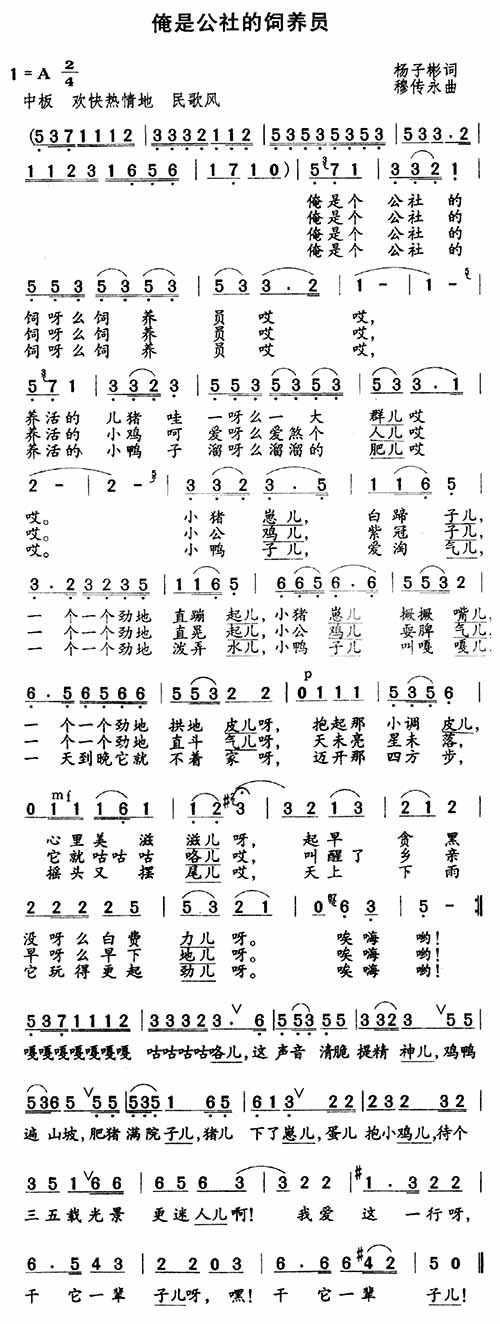 俺是公社的饲养员
1 = A 2/4
杨子彬词
中板 欢快热情地 民歌风
穆传永曲
(5371112 | 3332112 | 53535353535 | 533.2 |
1123231656 | 1710) | 571 | 3321 |
俺是个 公社的
俺是个 公社的
俺是个 公社的
俺是个 公社的
553 5353 | 533.2 | 1 - | 1 - |
饲呀么饲 养 员 哎 哎,
饲呀么饲 养 员 哎 哎,
饲呀么饲 养 员 哎 哎,
571 | 3323 | 553 5353 | 533.1 |
养活的 儿猪哇 一呀么一 大 群儿哎
养活的 小鸡呵 爱呀么爱煞个 人儿哎
养活的 小鸭子 溜呀么溜溜的 肥儿哎
2 - | 2 - | 332 3.5 | 1165 |
哎。 小猪 崽儿, 白蹄 子儿,
哎。 小公 鸡儿, 紫冠 子儿,
哎。 小鸭 子儿, 爱淘 气儿,
3.23235 | 1165 | 66566.6 | 5532 |
一 个一个劲地 直蹦 起儿,小猪 崽儿 撅撅 嘴儿,
一 个一个劲地 直晃 起儿,小公 鸡儿 耍脾 气儿,
一 个一个劲地 泼弄 水儿,小鸭 子儿 叫嘎 嘎儿,
6.56566 | 55322 | 0111 | 5356 |
p
一 个一个劲地 拱地 皮儿呀, 抱起那 小调 皮儿,
一 个一个劲地 直斗 气儿呀, 天未亮 星未 落,
一 天到晚它就 不着 家 呀, 迈开那 四方 步,
mf
0111 161 | 123 | 3213 | 212 |
心里美 滋 滋儿呀, 起早 贪黑
它就咕咕 咕 咯儿哎, 叫醒了 乡亲
摇头又 摆 尾儿哎, 天上 下雨
22225 | 5321 | 063 | 5 - :||
没呀么白费 力儿呀。 唉嗨 哟!
早呀么早下 地儿呀。 唉嗨 哟!
它玩得更起 劲儿呀。 唉嗨 哟!
5371112 | 33323.6 | 55355 | 3323 55 |
嘎嘎嘎嘎嘎嘎嘎 咕咕咕咕咯儿,这 声音 清脆 提精 神儿,鸡鸭
5365 55 | 535165 | 613 22 | 32232 |
遍 山坡,肥猪 满院 子儿,猪儿 下了崽儿,蛋儿 抱小鸡儿,待个
351 66 | 5663 | 322 | 1.322 |
三五载光景 更迷 人儿啊! 我爱 这 一行呀,
6.543 | 2203 | 6.66#42 | 50 ||
干 它一辈 子儿呀,嘿! 干 它一辈 子儿!